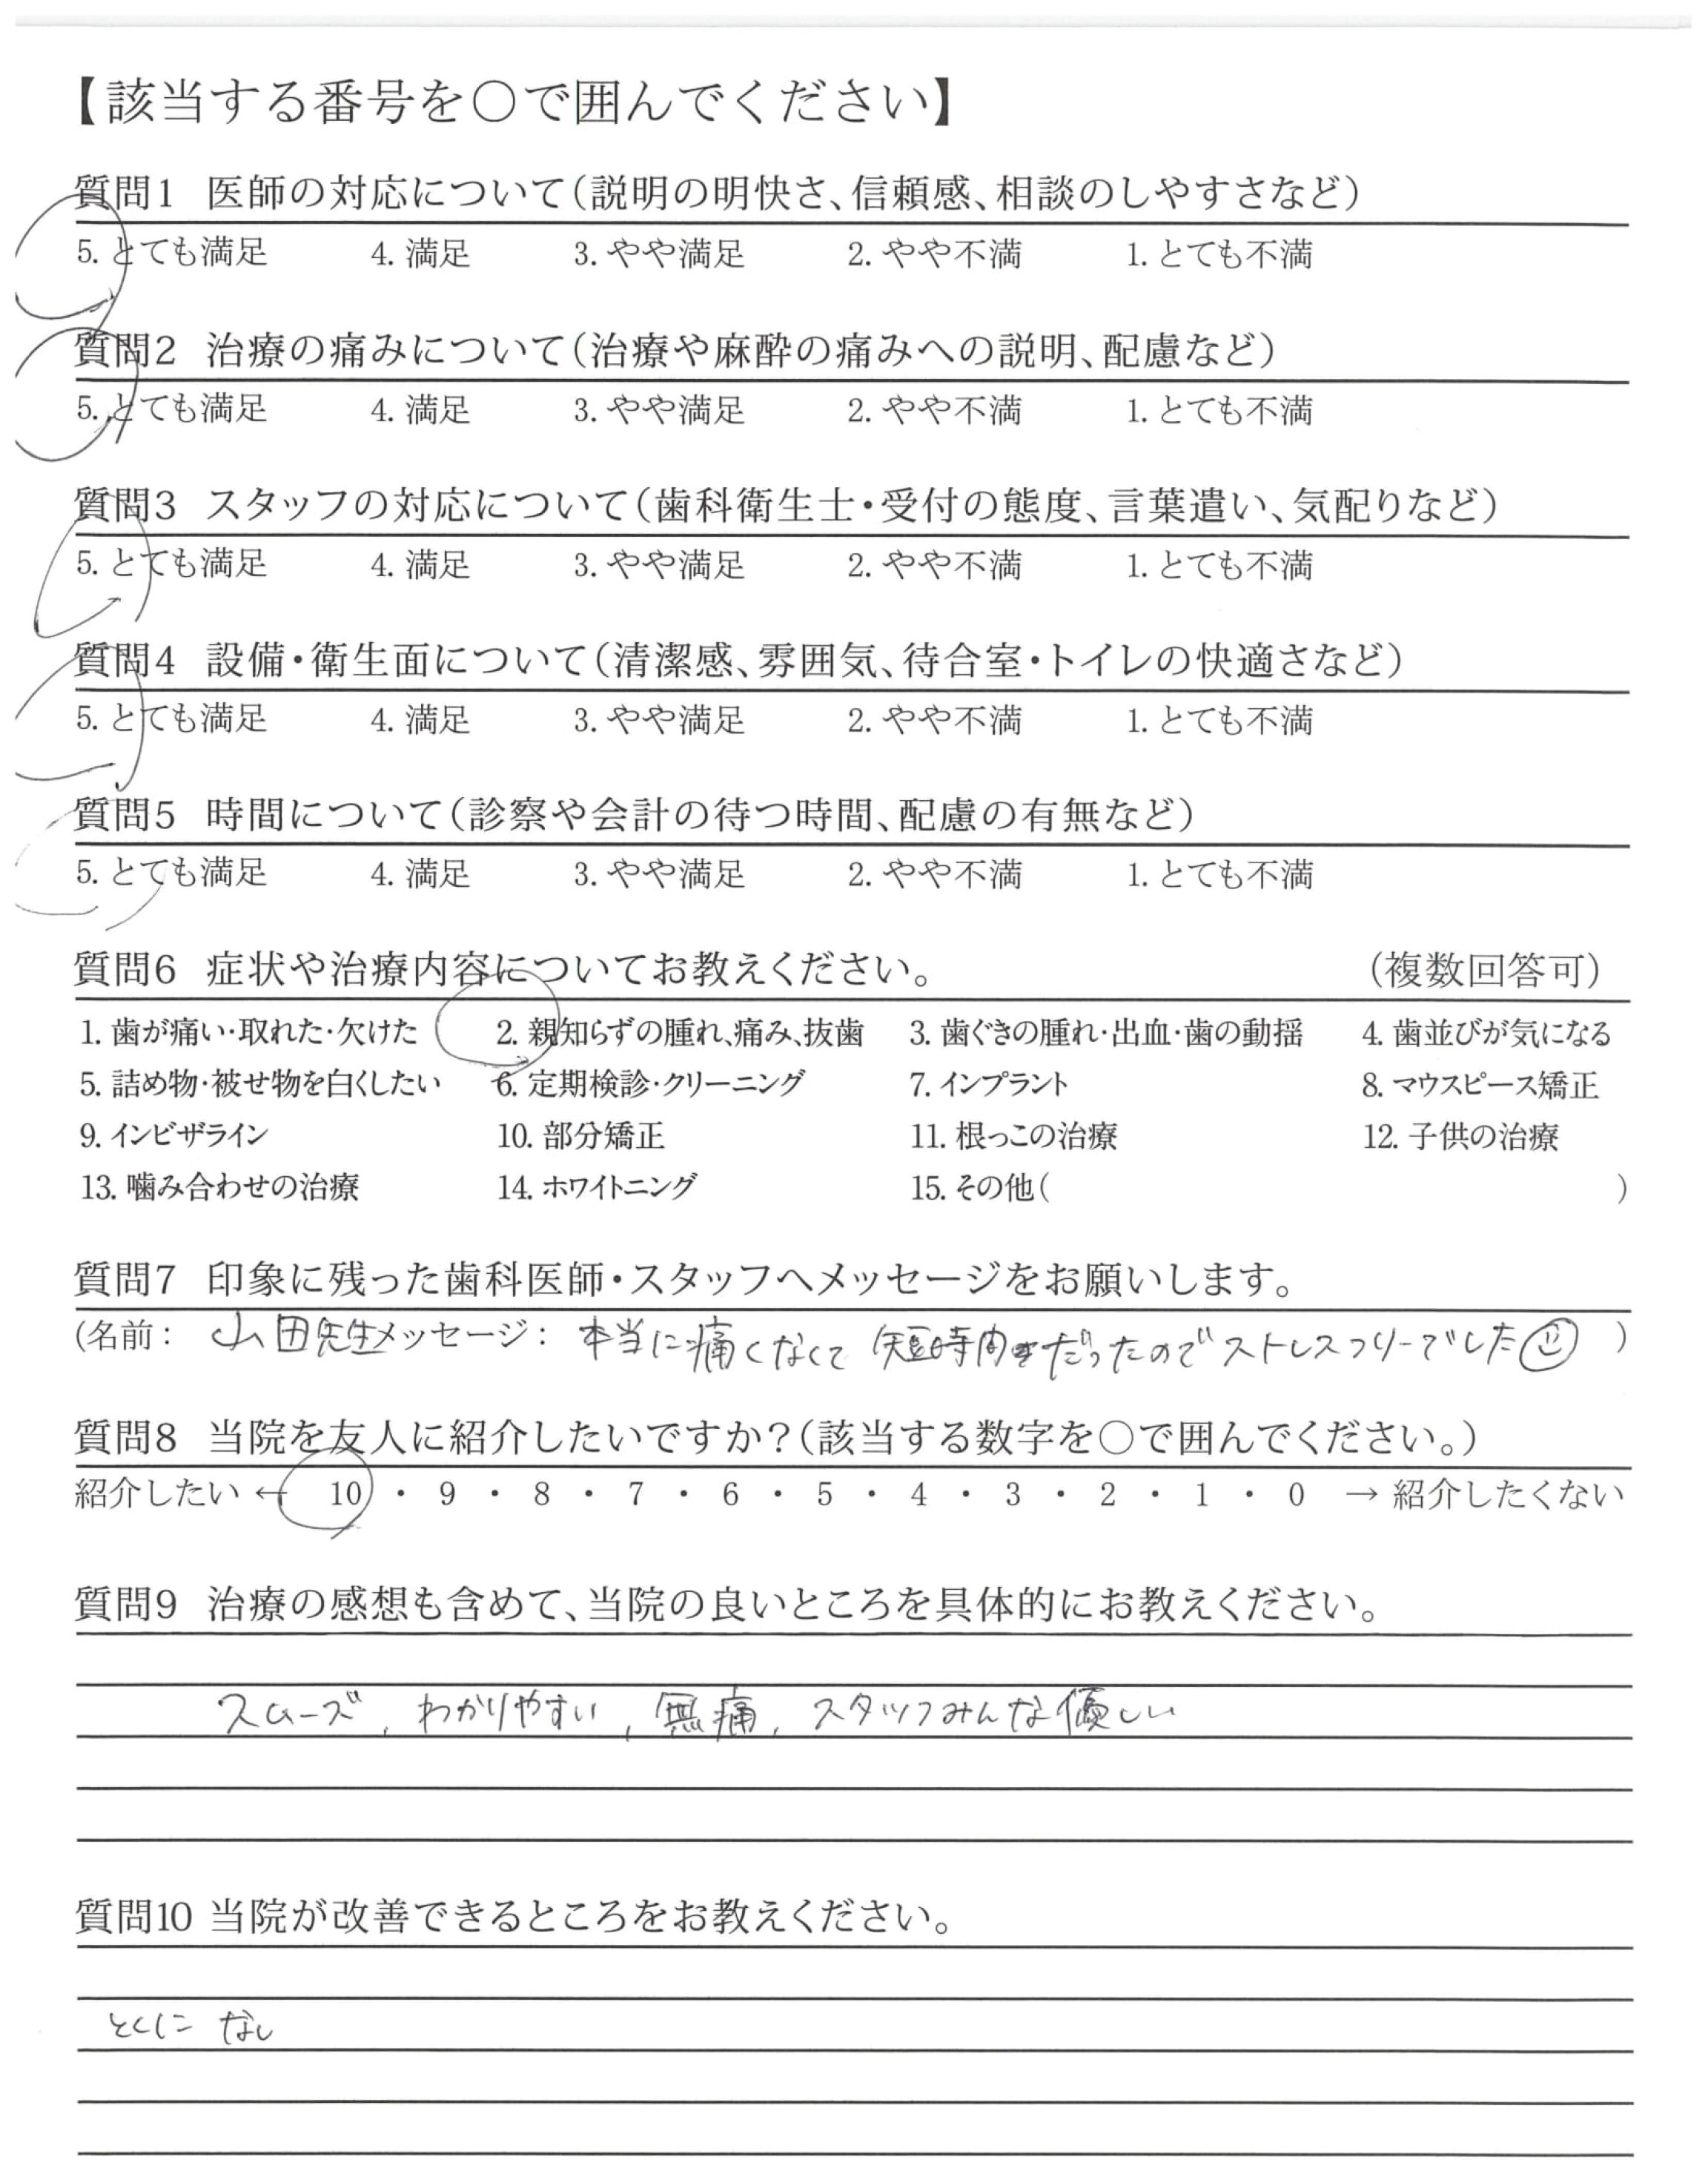 【該当する番号を○で囲んでください】
質問1 医師の対応について(説明の明快さ、信頼感、相談のしやすさなど)
5. とても満足 4. 満足 3. やや満足 2. やや不満 1. とても不満
質問2 治療の痛みについて(治療や麻酔の痛みへの説明、配慮など)
5. とても満足 4. 満足 3. やや満足 2. やや不満 1. とても不満
質問3 スタッフの対応について(歯科衛生士・受付の態度、言葉遣い、気配りなど)
5. とても満足 4. 満足 3. やや満足 2. やや不満 1. とても不満
質問4 設備・衛生面について(清潔感、雰囲気、待合室・トイレの快適さなど)
5. とても満足 4. 満足 3. やや満足 2. やや不満 1. とても不満
質問5 時間について(診察や会計の待つ時間、配慮の有無など)
5. とても満足 4. 満足 3. やや満足 2. やや不満 1. とても不満
質問6 症状や治療内容についてお教えください。 (複数回答可)
1. 歯が痛い・取れた・欠けた 2. 親知らずの腫れ、痛み、抜歯 3. 歯ぐきの腫れ・出血・歯の動揺 4. 歯並びが気になる
5. 詰め物・被せ物を白くしたい 6. 定期検診・クリーニング 7. インプラント 8. マウスピース矯正
9. インビザライン 10. 部分矯正 11. 根っこの治療 12. 子供の治療
13. 噛み合わせの治療 14. ホワイトニング 15. その他( )
質問7 印象に残った歯科医師・スタッフへメッセージをお願いします。
(名前： 山田先生 メッセージ： 本当に痛くなくて 短時間だったのでストレスフリーでした )
質問8 当院を友人に紹介したいですか？(該当する数字を○で囲んでください。)
紹介したい ← 10 ・ 9 ・ 8 ・ 7 ・ 6 ・ 5 ・ 4 ・ 3 ・ 2 ・ 1 ・ 0 → 紹介したくない
質問9 治療の感想も含めて、当院の良いところを具体的にお教えください。
スムーズ、わかりやすい、無痛、スタッフみんな優しい
質問10 当院が改善できるところをお教えください。
とくに なし